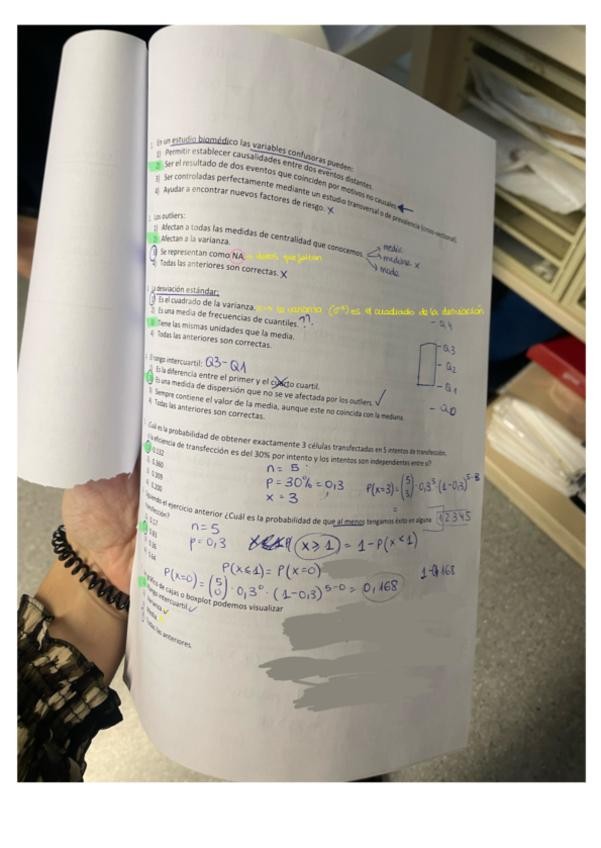 En un estudio biomédico las variables confusoras pueden:
1) Permitir establecer causalidades entre dos eventos distantes.
2) Ser el resultado de dos eventos que coinciden por motivos no causales
3) Ser controladas perfectamente mediante un estudio transversal o de prevalencia (cross-sectional).
4) Ayudar a encontrar nuevos factores de riesgo. X
Los outliers:
1) Afectan a todas las medidas de centralidad que conocemos.
media
mediana X
moda
2) Afectan a la varianza.
Se representan como NA datos que faltan
Todas las anteriores son correctas. X
La desviación estándar:
1) Es el cuadrado de la varianza. la varianza (σ²) es el cuadrado de la desviación
2) Es una media de frecuencias de cuantiles. ??
Tiene las mismas unidades que la media.
4) Todas las anteriores son correctas.
- Q4
- Q3
- Q2
- Q1
- Q0
El rango intercuartil: Q3-Q1
Es la diferencia entre el primer y el cuarto cuartil.
Es una medida de dispersión que no se ve afectada por los outliers. ✓
Siempre contiene el valor de la media, aunque este no coincida con la mediana.
Todas las anteriores son correctas.
¿Cuál es la probabilidad de obtener exactamente 3 células transfectadas en 5 intentos de transfección,
la eficiencia de transfección es del 30% por intento y los intentos son independientes entre sí?
0.132
0.360
0.309
0.200
n = 5
p = 30% = 0,3
x = 3
P(x=3) = (5 3) · 0,3³ (1-0,3)⁵⁻³
=
Siguiendo el ejercicio anterior ¿Cuál es la probabilidad de que al menos tengamos éxito en alguna
1 2 3 4 5
transfección?
n = 5
p = 0,3
(x ≥ 1) = 1 - P(x < 1)
P(x < 1) = P(x=0)
P(x=0) = (5 0) · 0,3⁰ · (1-0,3)⁵⁻⁰ = 0,168
de cajas o boxplot podemos visualizar
intercuartil ✓
Todas las anteriores.